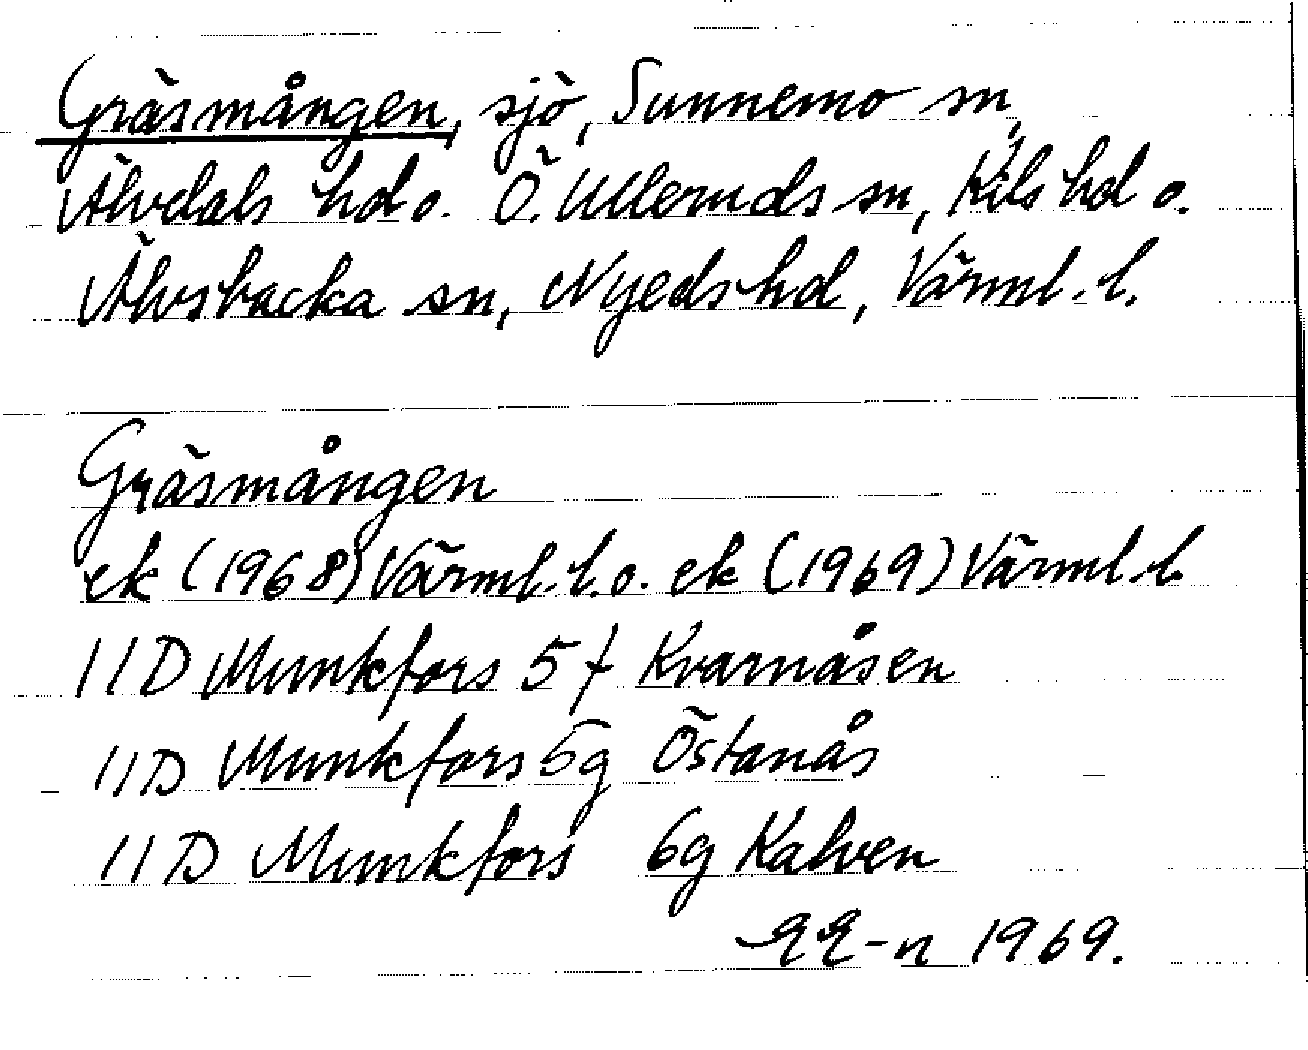 Gräsmången, sjö, Sunnemo sn,
Älvdals hd o. Ö. Ullemds sn, Kils hd o.
Älvsbacka sn, Nyeds hd, Värml. l.
Gräsmången
ek (1968) Värml. l. o. ek (1969) Värml. l.
11D Munkfors 5f Kvarnåsen
11D Munkfors 5g Östanås
11D Munkfors 6g Kalven
EE-n 1969.